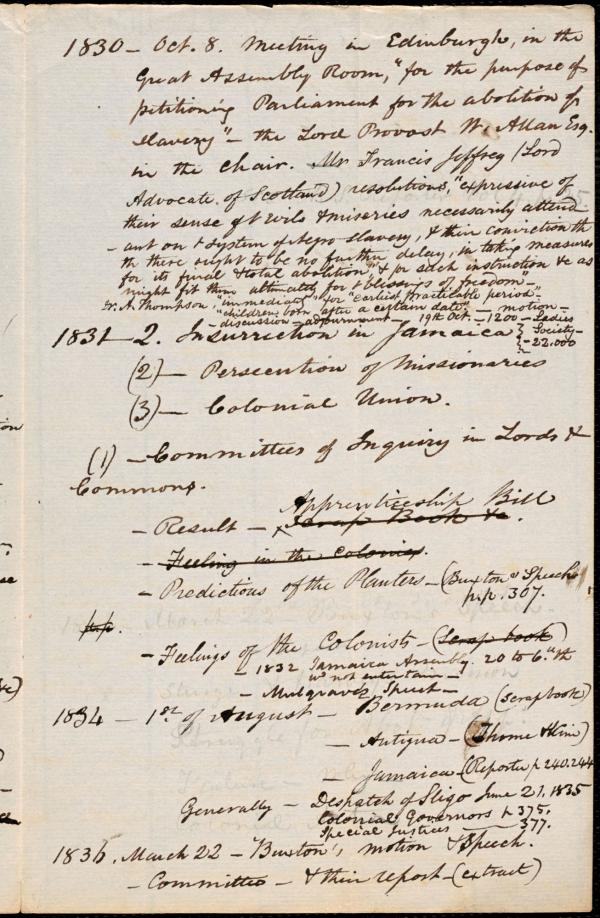 1830 – Oct. 8. Meeting in Edinburgh, in the
Great Assembly Room, "for the purpose of
petitioning Parliament for the abolition of
slavery" – the Lord Provost W. Allan Esq.
in the Chair. Mr Francis Jeffrey (Lord
Advocate of Scotland) resolutions, "expressive of
their sense of & evils & miseries necessarily attend
- ant on & system of Negro slavery, & their conviction th
th there ought to be no further delay, in taking measures
for its final & total abolition," & for such instruction &c as
might fit them ultimately for & blessings of freedom" –
Dr. A. Thompson "immediate" for "earliest practicable period" –
"children born after a certain date" – motion –
– discussion – adjournment – 19th Oct. – 1200 – Ladies
Society –
– 22.000
1831 – 2. Insurrection in Jamaica
(2) – Persecution of Missionaries
(3) – Colonial Union.
(1) – Committees of Inquiry in Lords &
Commons.
Apprenticeship Bill
– Result – Scrap Book &c.
– Feeling in the Colonies.
– Predictions of the Planters – (Buxton's Speech
p.p. 307.
p.p.
– Feelings of the Colonists – (Scrap book)
– 1832 Jamaica Assembly. 20 to 6. "th
wd not entertain –
– Mulgrave's Speech –
1834 – 1st of August – Bermuda (Scrapbook)
– Antigua – (Thome & Kim)
– Jamaica – (Reporter p 240.244
Generally – Despatch of Sligo June 21. 1835
Colonial Governors p 375.
Special Justices – 377.
1836. March 22 – Buxton's motion & Speech.
– Committee – & their report – (extract)